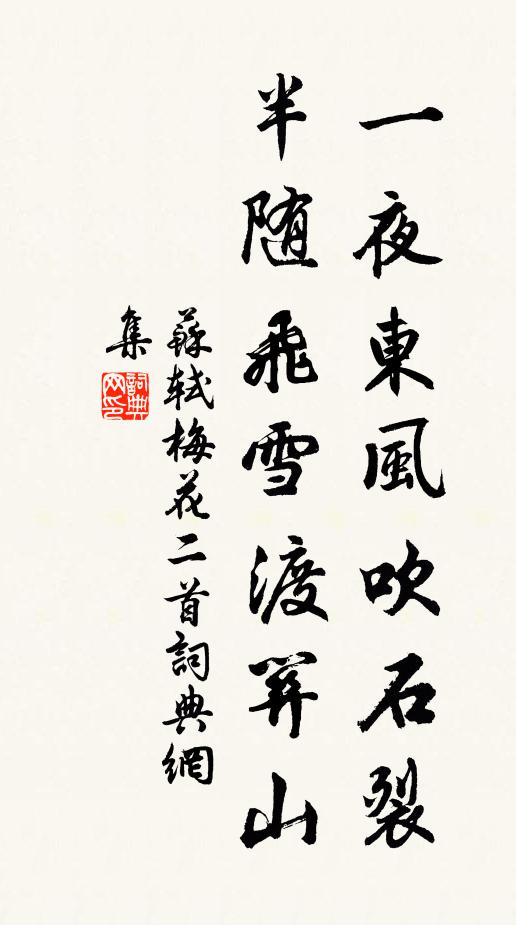 一夜東風吹石裂
半随飛雪渡關山
蘇軾梅花二首詞典網
集
詞典
网印